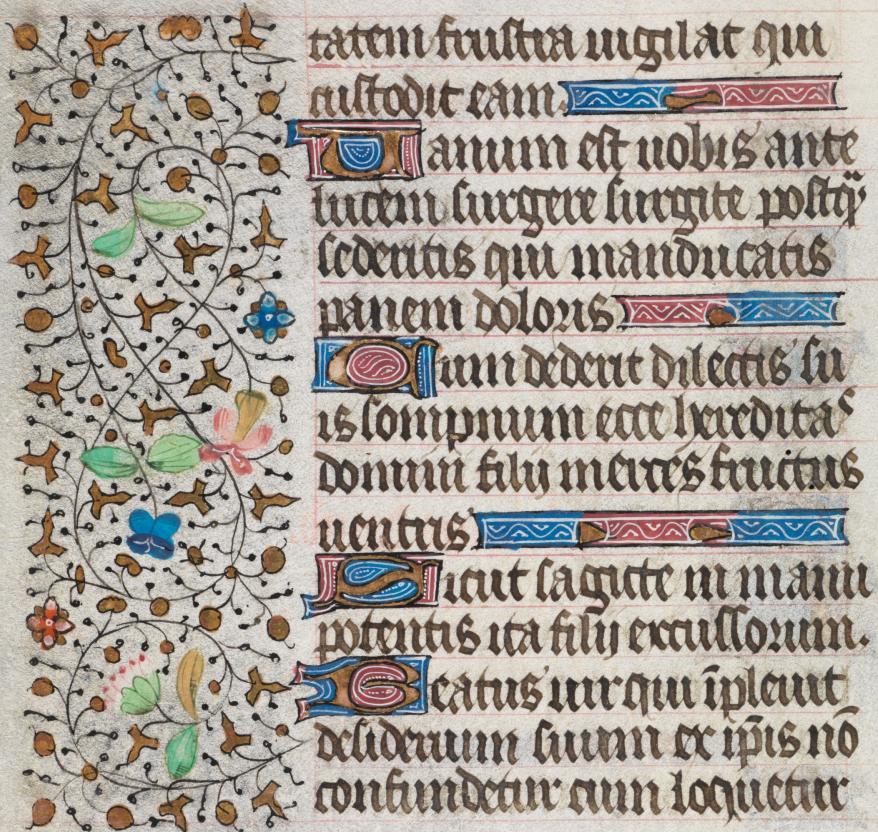 tatem frustra uigilat qui
custodit eam
Uanum est uobis ante
lucem surgere surgite postq̄
sederitis qui manducatis
panem doloris
Cum dederit dilectis su
is sompnum ecce hereditas
domini filij merces fructus
uentris
Sicut sagitte in manu
potentis ita filij excussorum.
Beatus uir qui īpleuit
desiderium suum ex ip̄is nō
confundetur cum loquetur